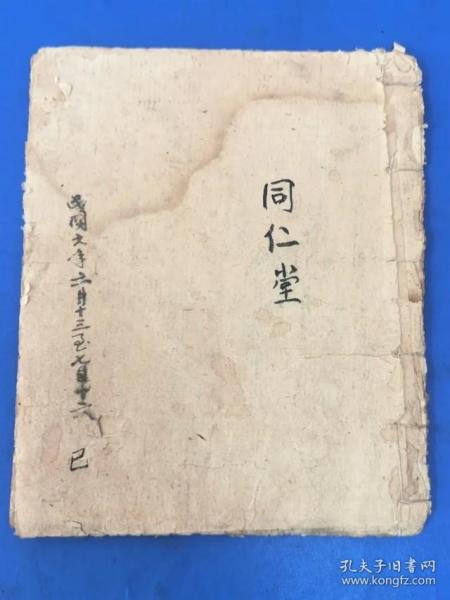 同仁堂
民國六年六月十三至七月十六 已
孔夫子旧书网
www.kongfz.com